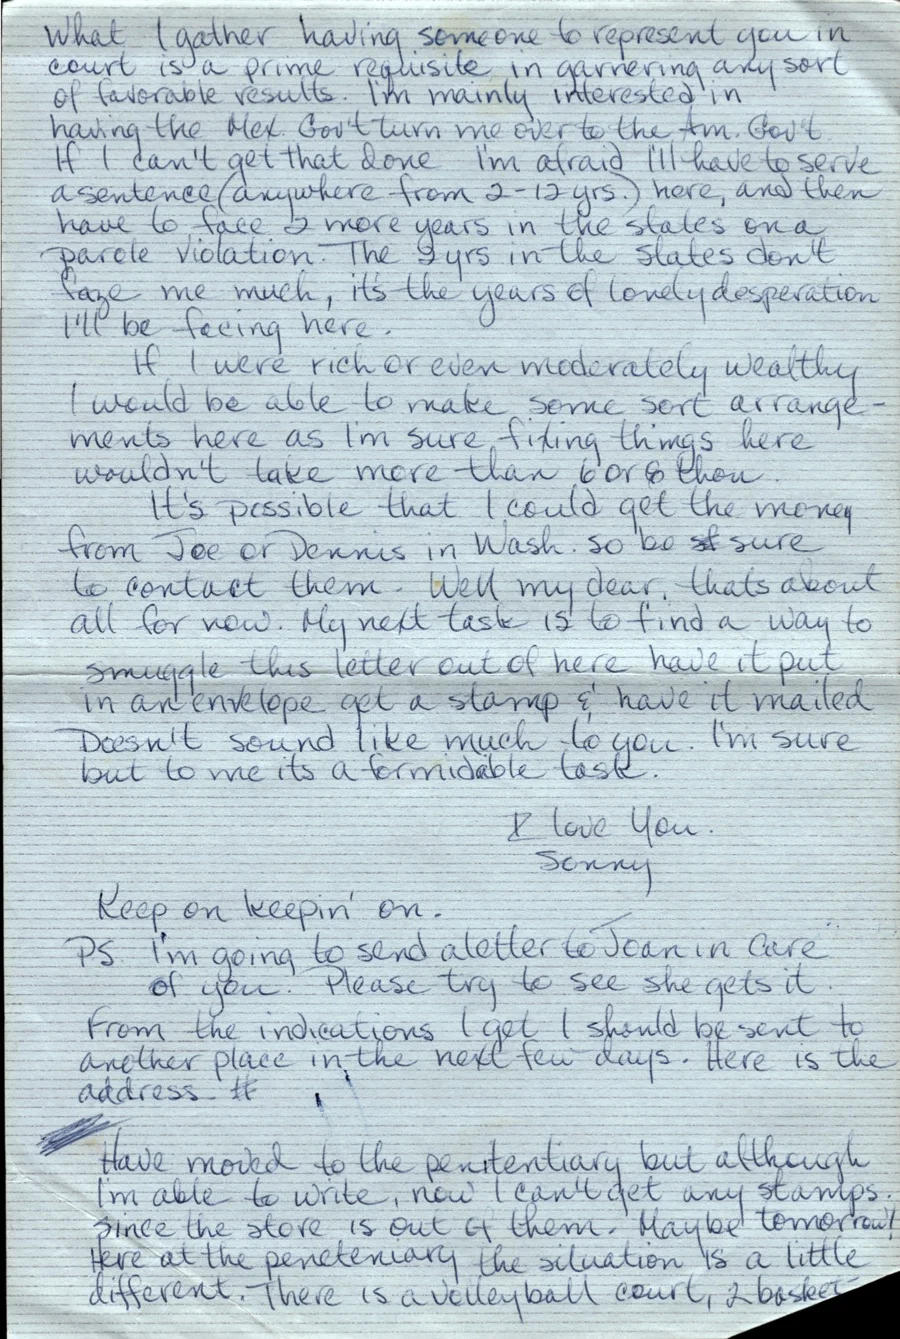 What I gather having someone to represent you in
court is a prime requisite in garnering any sort
of favorable results. I'm mainly interested in
having the Mex. Gov't turn me over to the Am. Gov't
If I can't get that done I'm afraid I'll have to serve
a sentence (anywhere from 2-12 yrs.) here, and then
have to face 2 more years in the states on a
parole violation. The 2 yrs in the states don't
faze me much, it's the years of lonely desperation
I'll be facing here.
If I were rich or even moderately wealthy
I would be able to make some sort arrange-
ments here as I'm sure fixing things here
wouldn't take more than 6 or 8 thou.
It's possible that I could get the money
from Joe or Dennis in Wash. so be sure
to contact them. Well my dear, thats about
all for now. My next task is to find a way to
smuggle this letter out of here have it put
in an envelope get a stamp & have it mailed
Doesn't sound like much to you. I'm sure
but to me its a formidable task.
I love You.
Sonny
Keep on keepin' on.
PS. I'm going to send a letter to Joan in Care
of you. Please try to see she gets it.
From the indications I get I should be sent to
another place in the next few days. Here is the
address. #
Have moved to the penitentiary but although
I'm able to write, now I can't get any stamps.
Since the store is out of them. Maybe tomorrow!
Here at the penetenuary the situation is a little
different. There is a volleyball court, 2 basket-